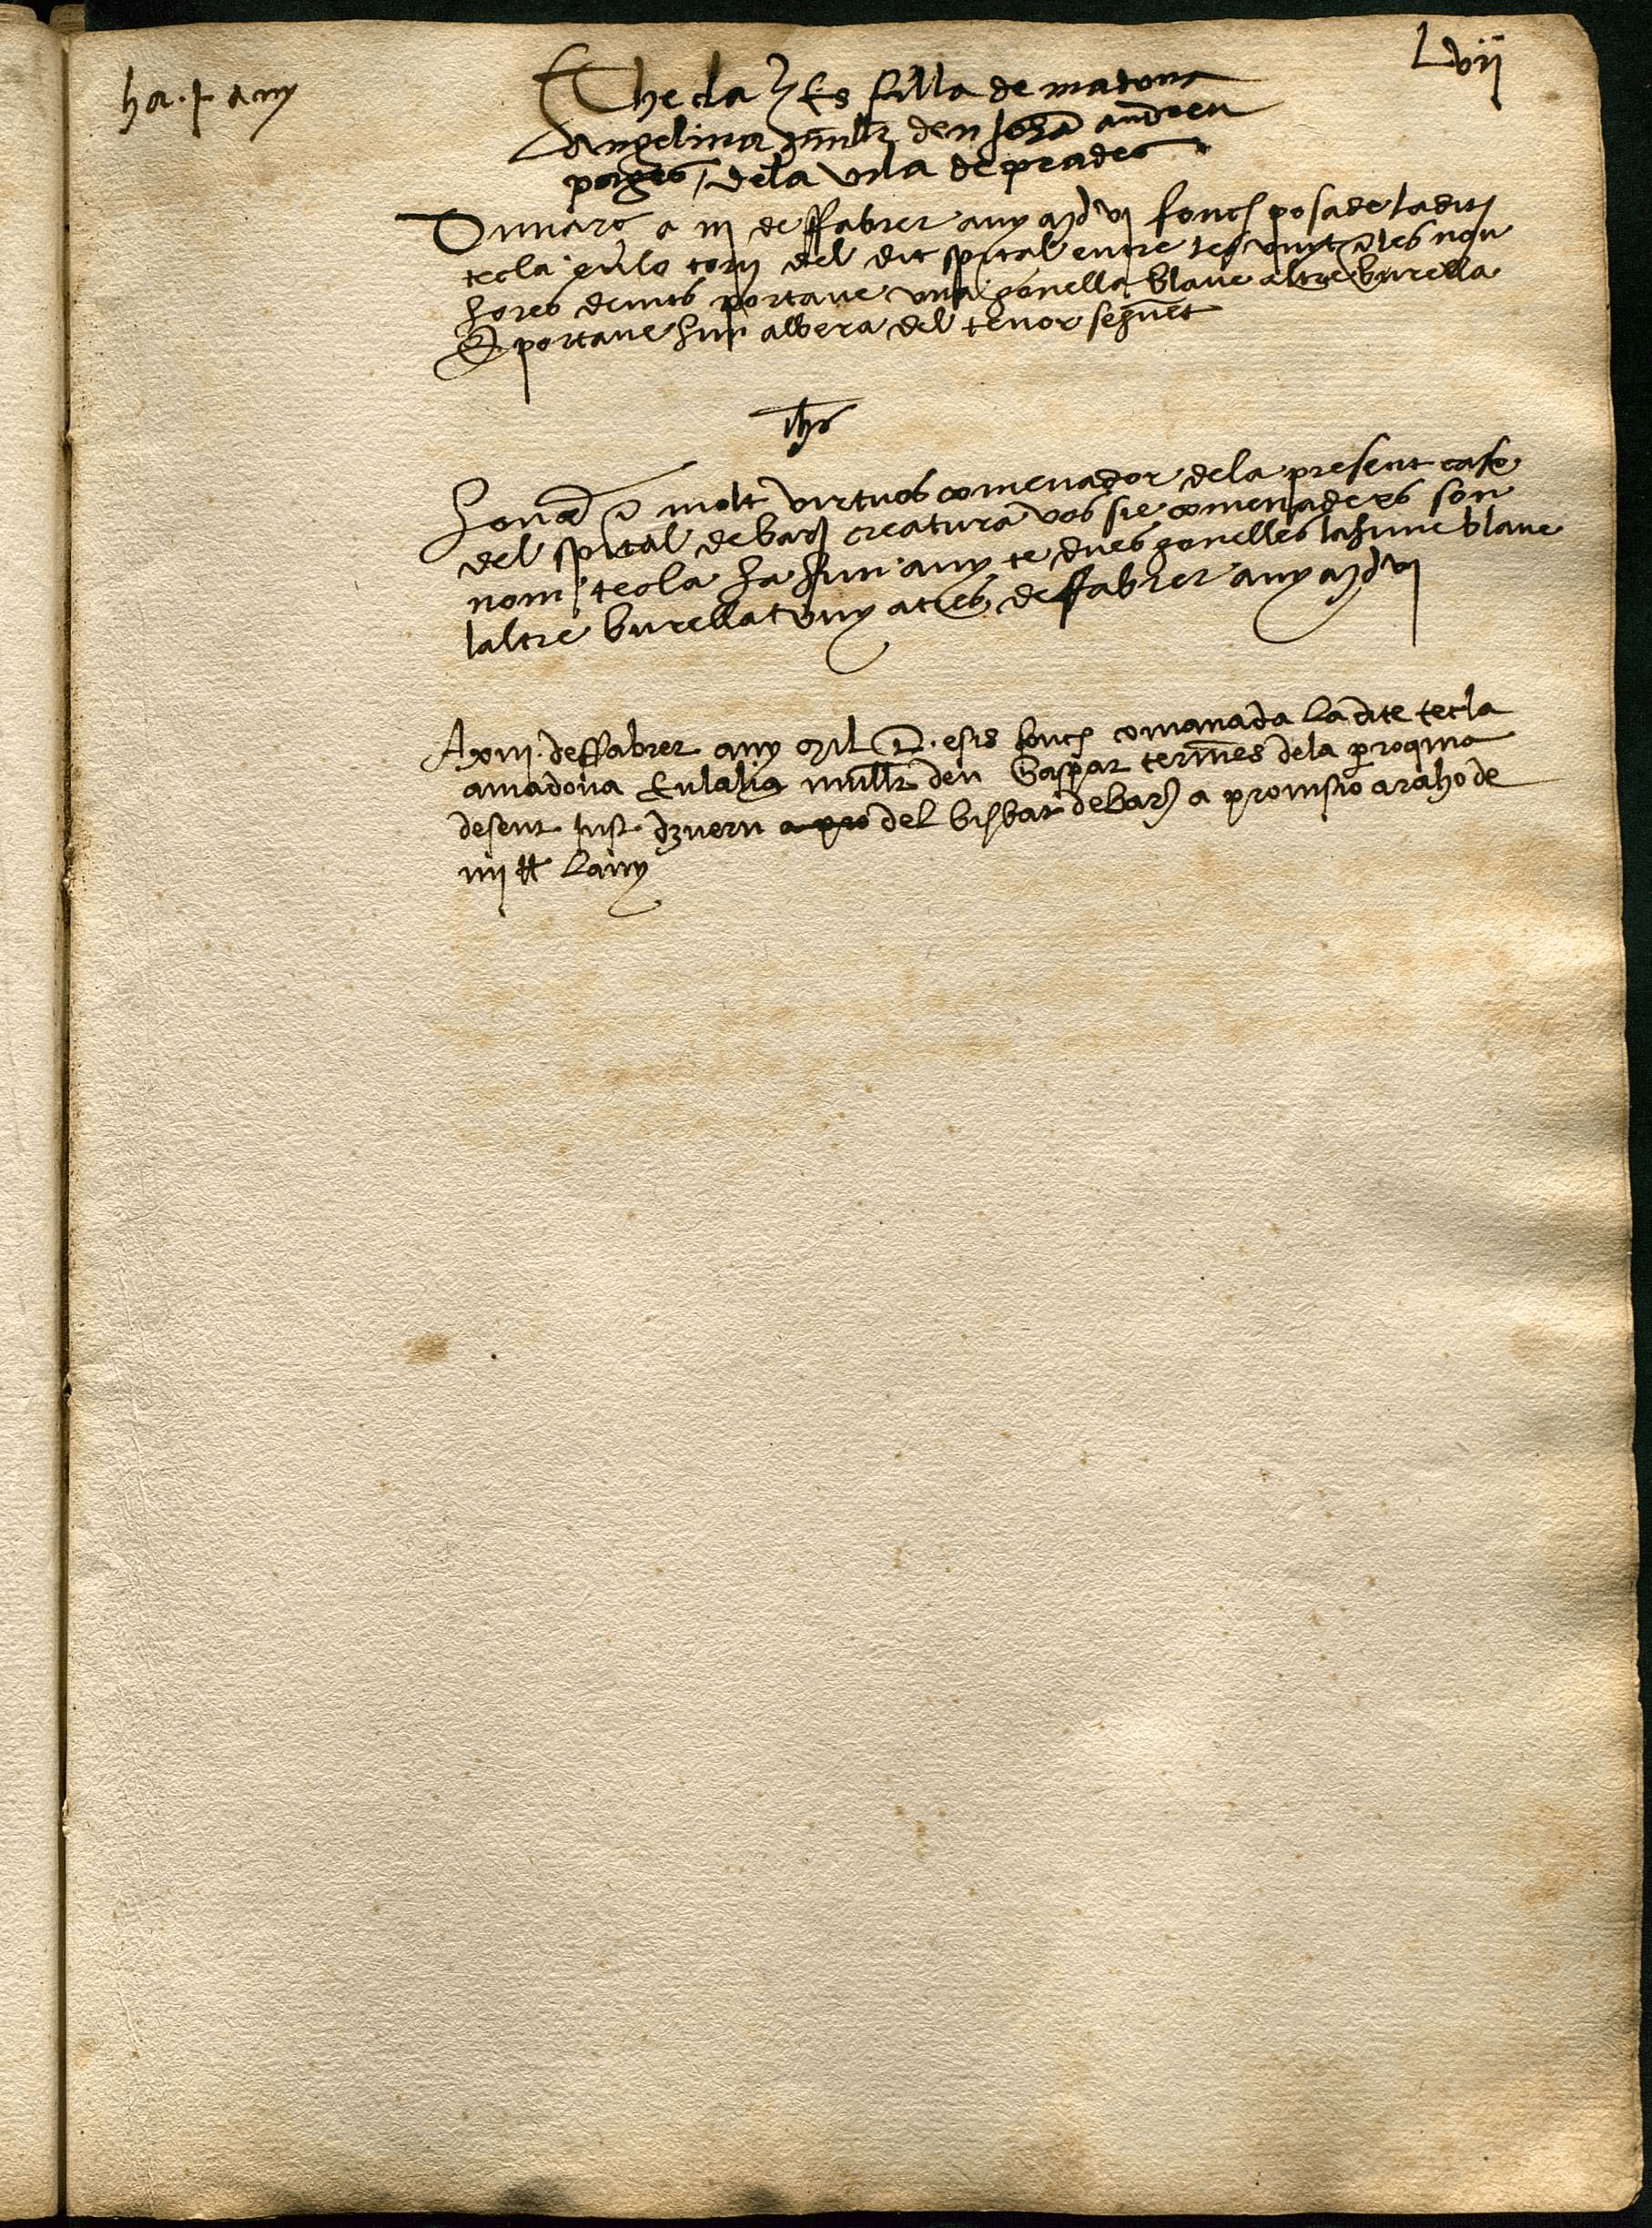 Lvij
ha · j · any
Thecla Es filla de madona
Angelina mullr den Johā andreu
pages / dela vila de prades
Dimarc a iij de ffabrer any md vj fonch posade ladita
tecla en lo torn del dit spital entre les vuyt e les nou
hores de nits portave vna gonella blave altre burella
E portave hun albera del tenor seguēt
Ihs
Honor e molt virtuos comenador dela present casa
del spital de bar creatura vos sie comenades son
nom tecla ha hun any te dues gonelles la hune blave
laltre burellat vuy a tres de ffabrer any md vj
A xviij · deffabrer any mil D · e sis fonch comanada la dite tecla
a madona Eulalia mullr den Gaspar termēs dela proquia
de sent Just dzvern a pro del bisbat de bar a prouisio a raho de
iiij ll lany